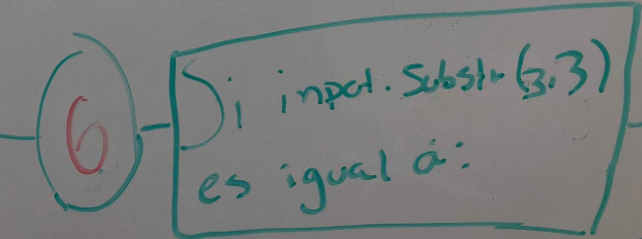 6
Si input.substr(3,3)
es igual a: